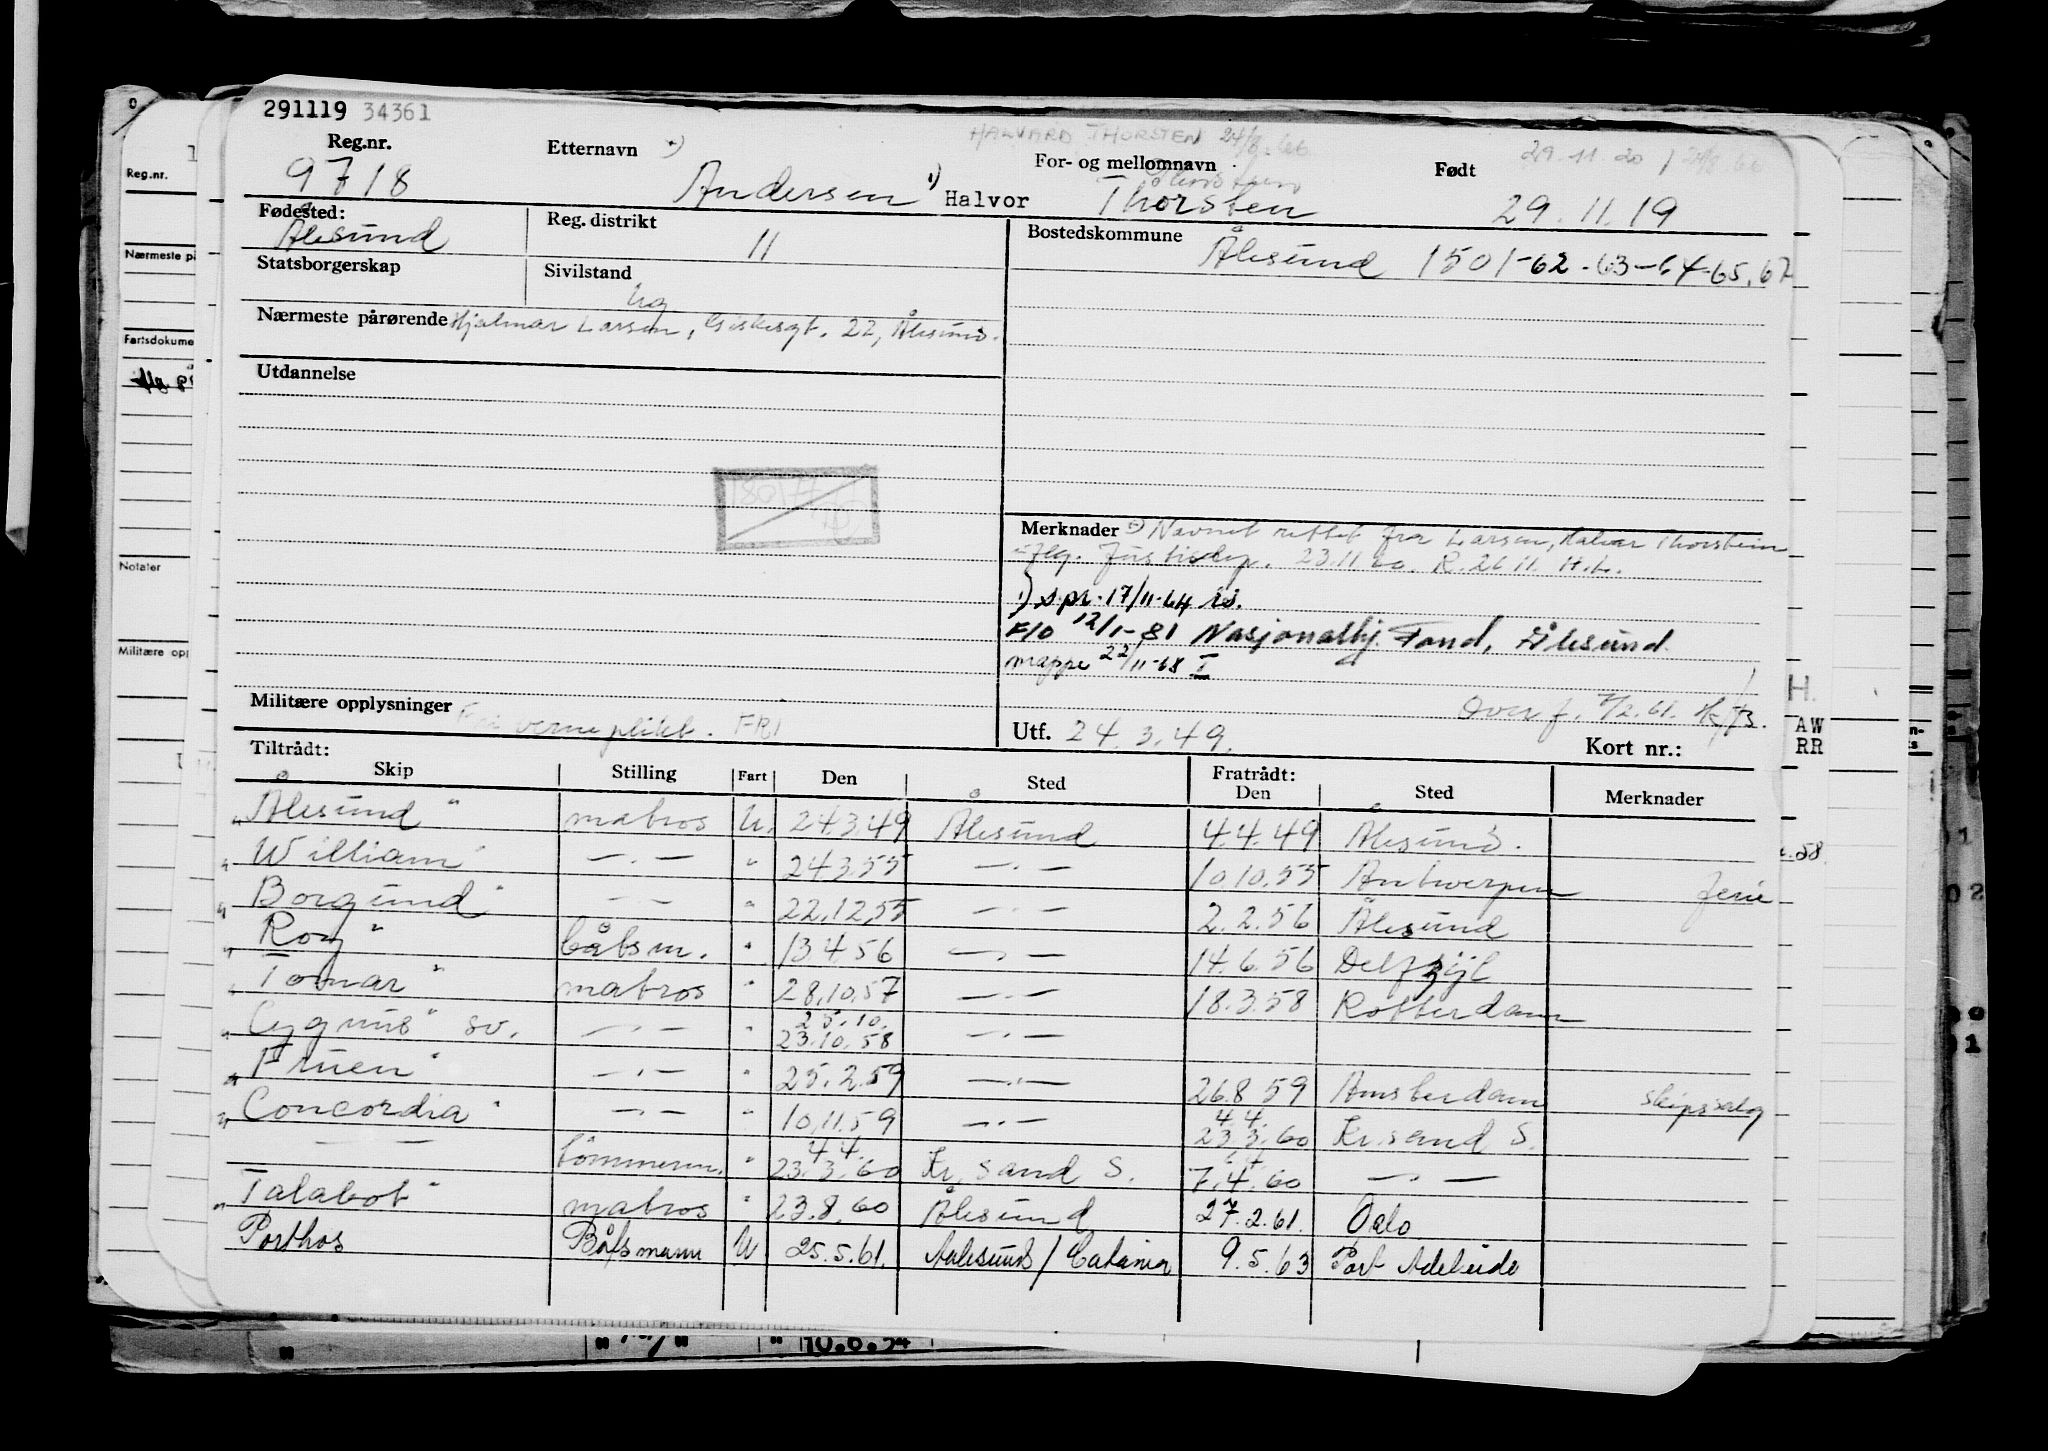 291119 34361
HALVARD THORSTEN 24/8-66
Reg.nr. Etternavn For- og mellomnavn Født
29.11.20
9718 Andersen 1) Halvor Thorsten 29.11.19
Fødested: Reg. distrikt Bostedskommune
Ålesund 11 Ålesund 1501-62-63-64-65.67
Statsborgerskap Sivilstand
Ug
Nærmeste pårørende Hjalmar Larsen, Giskegt. 22, Ålesund.
Utdannelse
Merknader Navnet rettet fra Larsen, Halvor Thorstein
iflg. Justisdep. 23.11.60. R. 26.11. H.L.
1) spr. 17/11-64
F/O 12/1-81 Nasjonalbj. Fond, Ålesund.
mappe 22/11-68 I
Militære opplysninger Fri verneplikt. FRI
Overf. 7/2.61.
Utf. 24.3.49. Kort nr.:
Tiltrådt: Fratrådt:
Skip Stilling Fart Den Sted Den Sted Merknader
"Ålesund" matros U. 24.3.49 Ålesund 4.4.49 Ålesund.
"William" —.— " 24.3.55 —.— 10.10.55 Antwerpen ferie
"Borgund" —.— " 22.12.55 —.— 2.2.56 Ålesund
"Roy" båtsm. " 13.4.56 —.— 14.6.56 Delfzijl
"Tomar" matros " 28.10.57 —.— 18.3.58 Rotterdam
25.10.
"Cygnus" sv. —.— " 23.10.58 —.—
"Fruen" —.— " 25.2.59 —.— 26.8.59 Amsterdam skipssalg
4.4.
"Concordia" —.— " 10.11.59 —.— 23.3.60 Kr.sand S.
4.4.
— — tömmerm. " 23.3.60 Kr.sand S. 7.4.60 —.—
"Talabot" matros " 23.8.60 Ålesund 27.2.61. Oslo
Porthos Båtsmann U 25.5.61. Aalesund/Catania 9.5.63 Port Adelaide
Reg.nr.
Nærmeste på
Fartsdokume
Notater
Militære opp
H.
AW
RR
58.
" " " 10.6.54